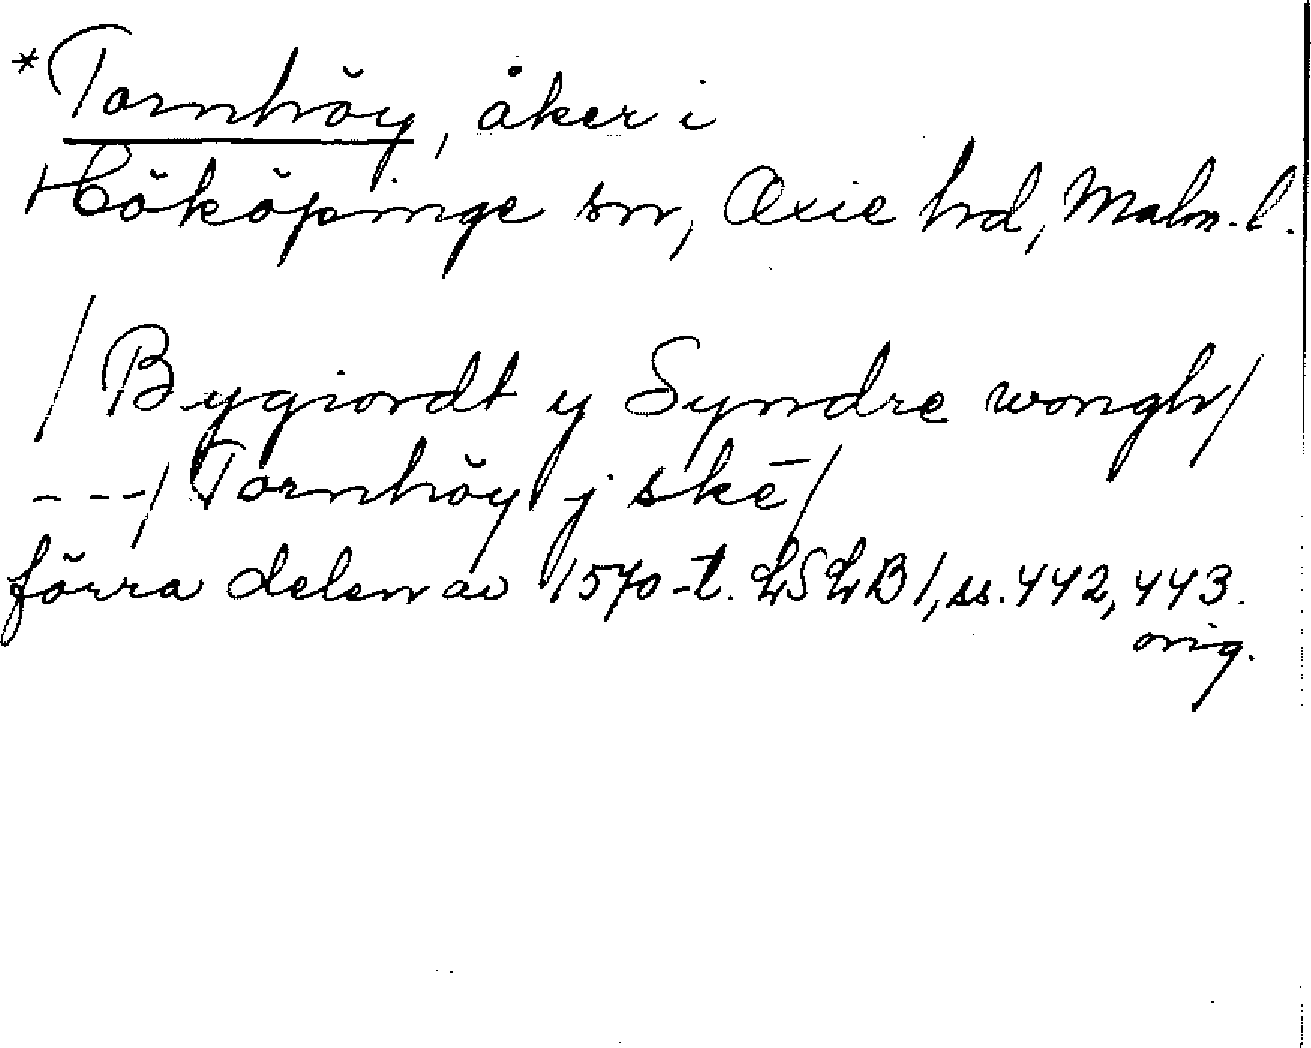 *Tornhöy, åker i
Hököpinge sn, Oxie hd, Malm. l.
/Bygiordt y Syndre wongh/
---/Tornhöy j skē/
förra delen av 1570-t. LSLB 1, ss. 442, 443.
orig.